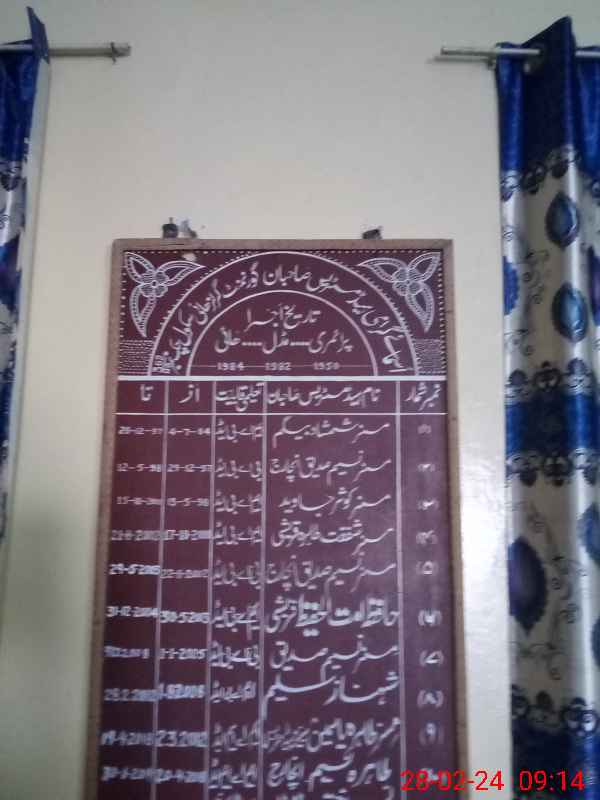 اسمائے گرامی ہیڈ مسٹریس صاحبان گورنمنٹ گرلز ہائی سکول
تاریخ اجرا
پرائمری .... مڈل .... ہائی
1950 1982 1984
نمبر شمار نام ہیڈ مسٹریس صاحبان تعلیمی قابلیت از تا
(۱) مسز شمشاد بیگم ایم اے بی ایڈ 4-7-84 26-12-97
(۲) مسز نسیم صدیق انچارج بی اے بی ایڈ 29-12-97 12-5-98
(۳) مسز کوثر جاوید ایم اے بی ایڈ 15-5-98
(۴) مسز شفقت طاہرہ قریشی ایم اے بی ایڈ 21-8-2002
(۵) مسز نسیم صدیق انچارج بی اے بی ایڈ 22-8-2002 29-5-2003
(۶) حافظہ امت الحفیظ قریشی ایم اے بی ایڈ 30-5-2003 31-12-2004
(۷) مسز نسیم صدیق بی اے بی ایڈ 1-1-2005
(۸) شہناز سلیم ایم اے بی ایڈ
(۹) مسز طاہرہ یاسمین ایم اے ایم ایڈ 2.3.2012
طاہرہ نسیم انچارج ایم اے ایم ایڈ
28-02-24 09:14